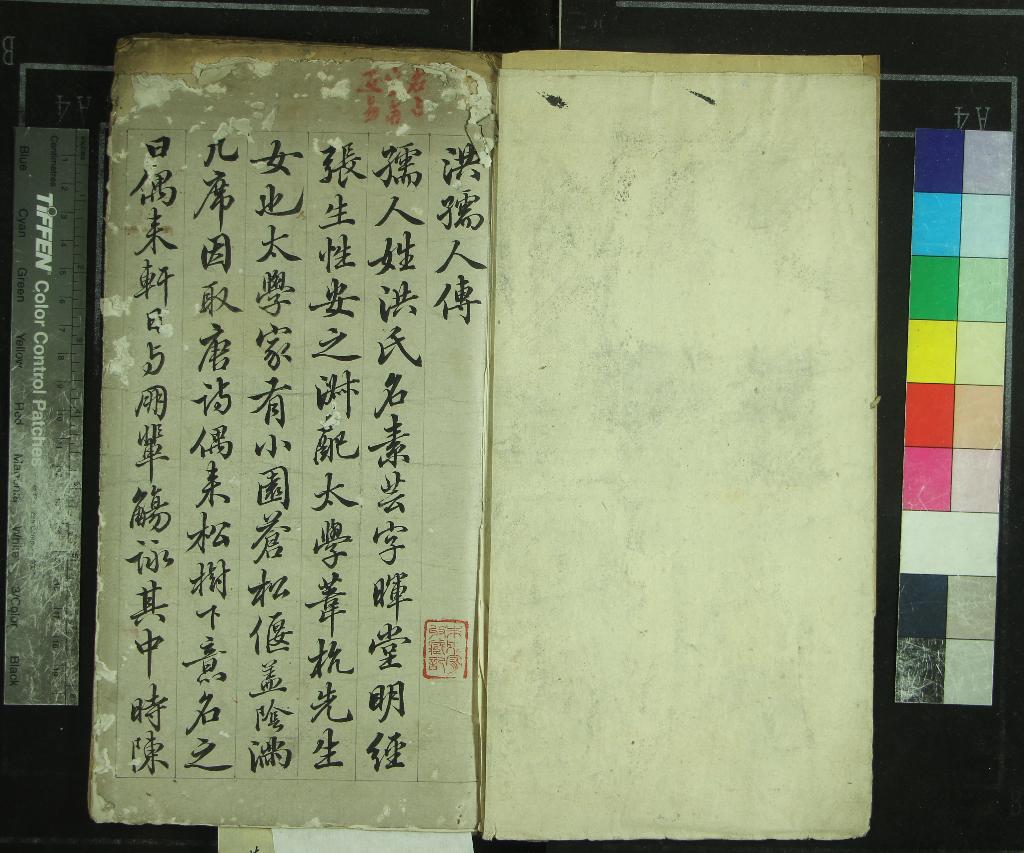 洪孺人傳
孺人姓洪氏名素芸字暉堂明經
張生性安之淑配太學葦杭先生
女也太學家有小園蒼松偃蓋陰滿
几席因取唐詩偶来松樹下意名之
曰偶来軒日与朋輩觴詠其中時陳
TIFFEN Color Control Patches
Centimetres
Inches
Blue
Cyan
Green
Yellow
Red
Magenta
White
3/Color
Black
A4
A4
B